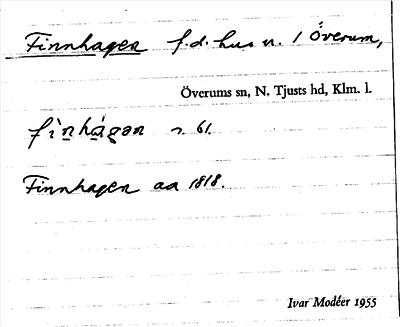 Finnhagen f.d. hus n. 1 Överum,
Överums sn, N. Tjusts hd, Klm. l.
fìnhágən n. 61.
Finnhagen aa 1818.
Ivar Modéer 1955